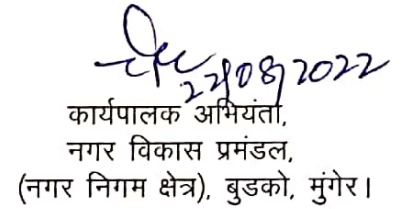 22/08/2022
कार्यपालक अभियंता,
नगर विकास प्रमंडल,
(नगर निगम क्षेत्र), बुडको, मुंगेर।